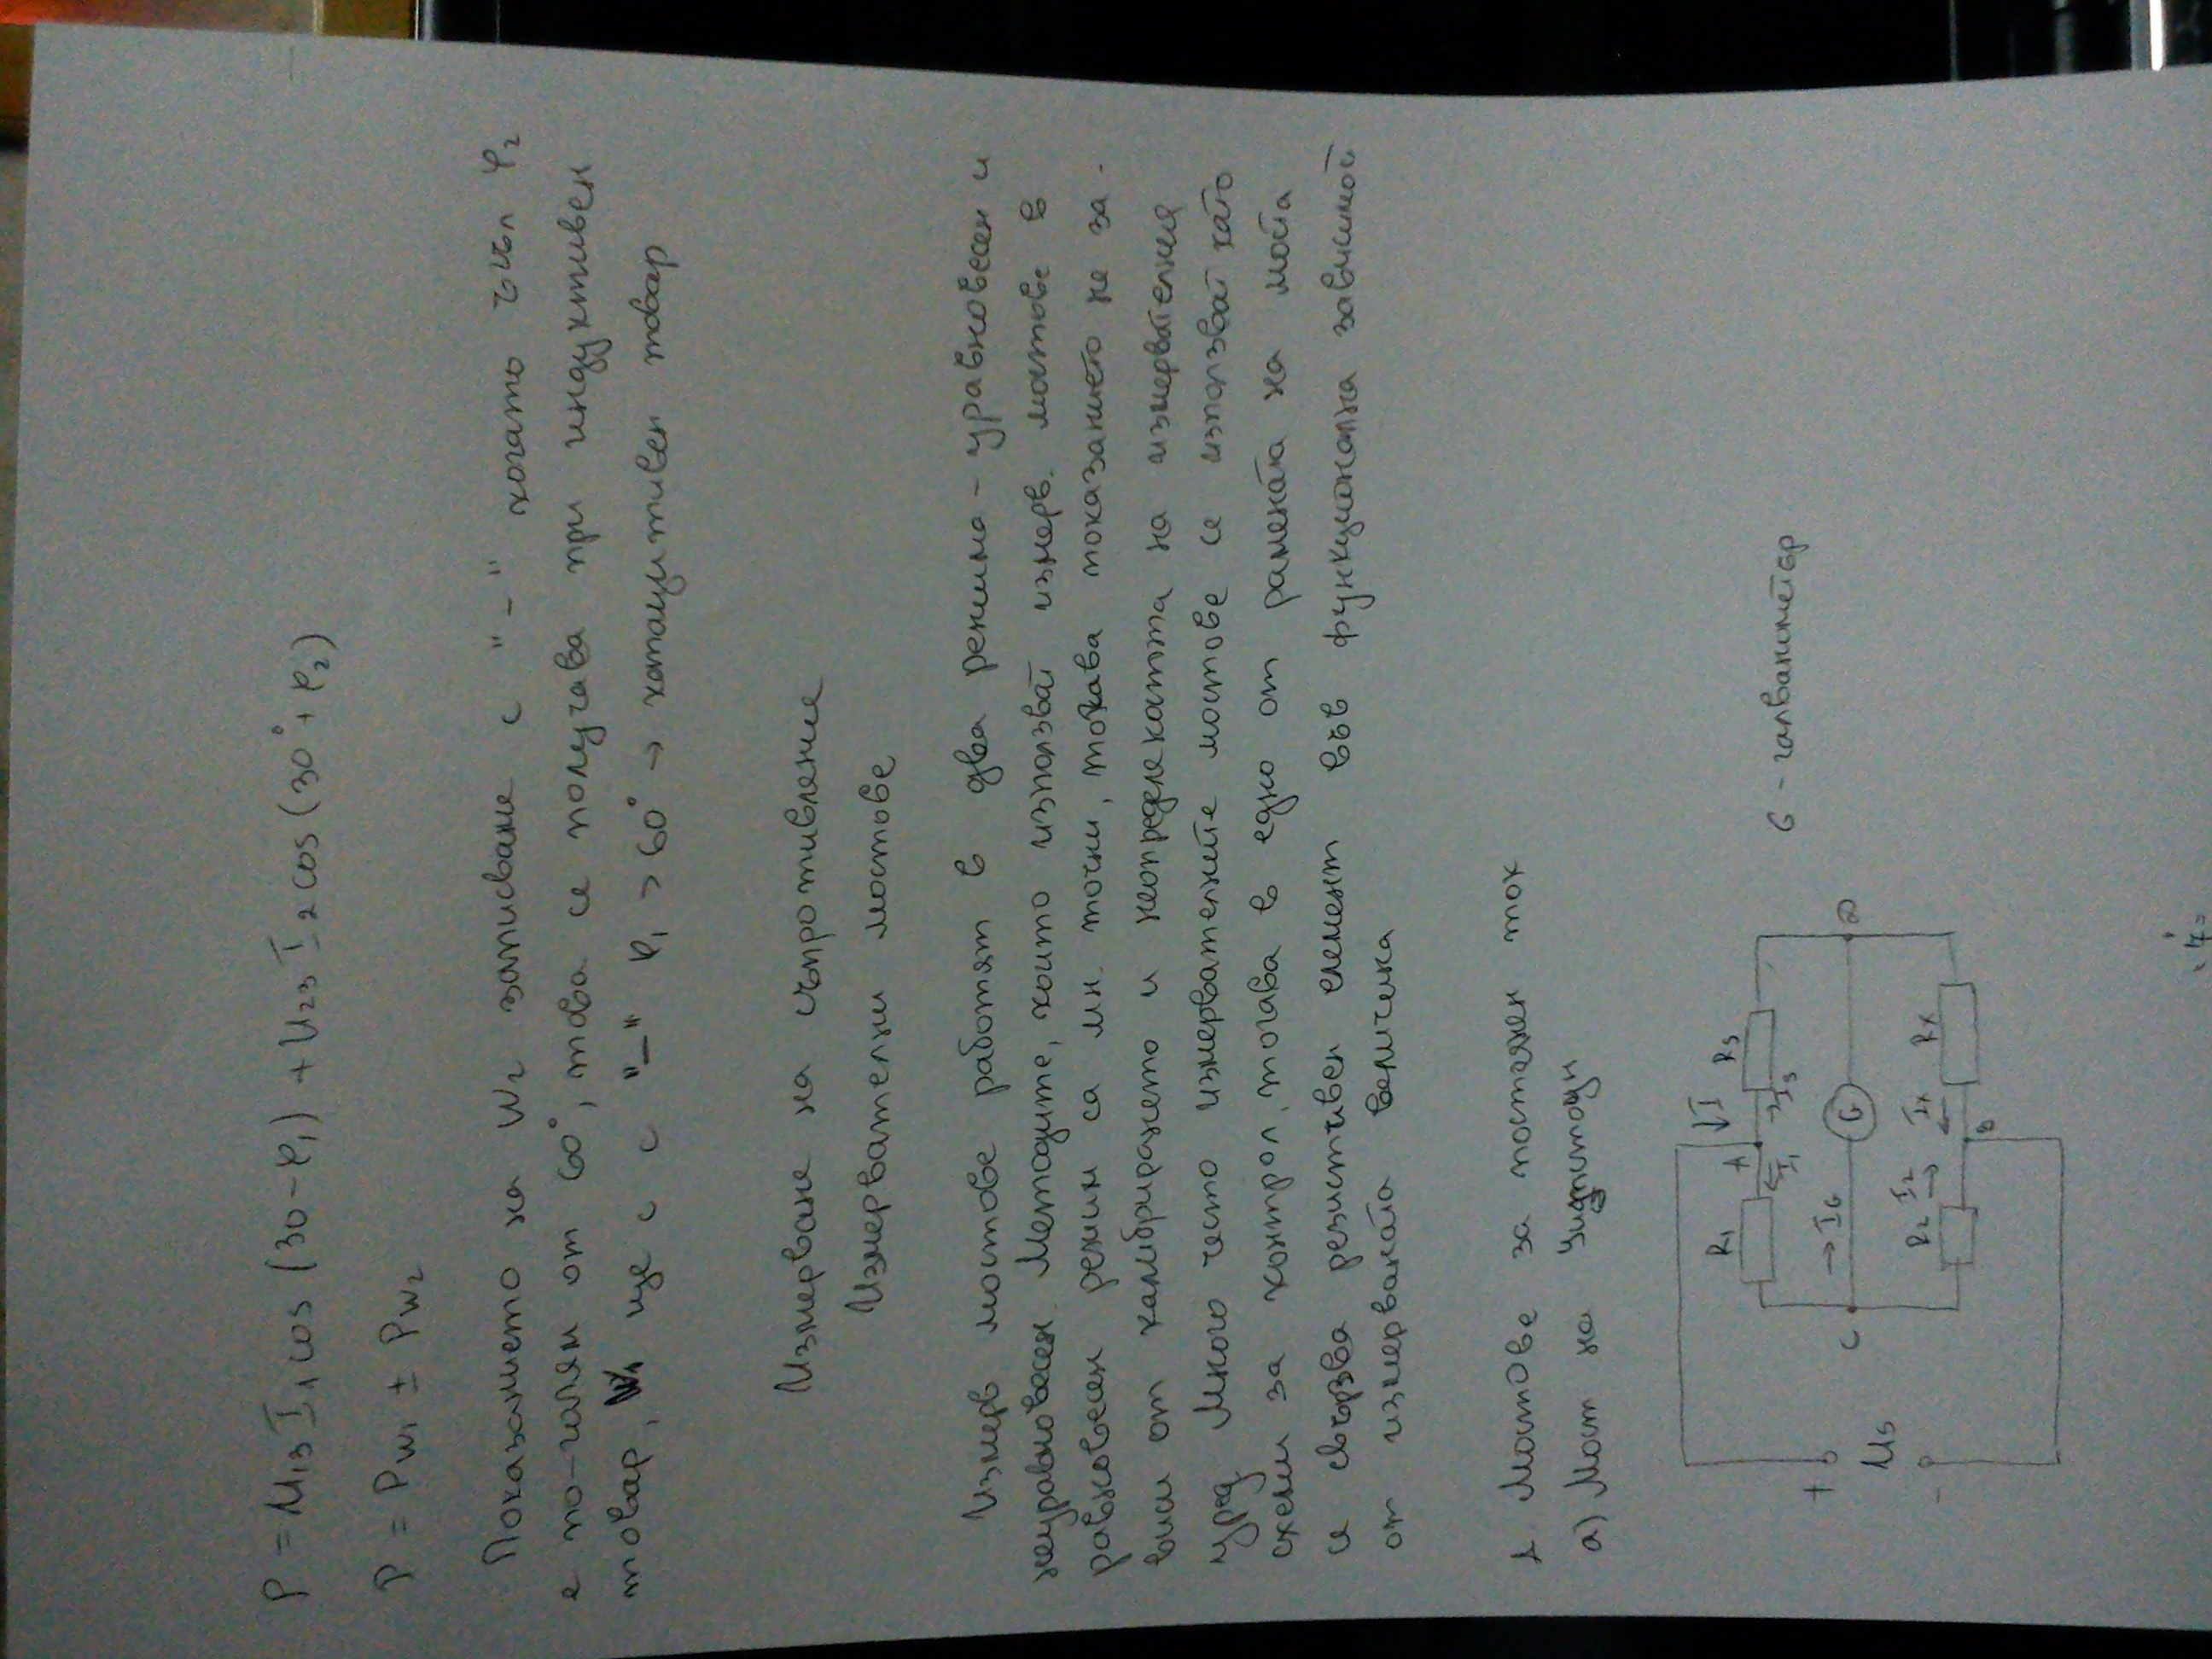 P = U₁₃I₁cos (30-φ₁) + U₂₃I₂cos (30°+φ₂)
P = Pw₁ ± Pw₂
Показанието на W₂ записване с "-" когато ъгъл φ₂
е по-голям от 60°, това се получава при индуктивен
товар, W₁ ще с с "-" φ₁ > 60° → капацитивен товар
Измерване на съпротивление
Измервателни мостове
Измерв мостове работят в два режима - уравновесен и
неуравновесен. Методите, които използват измерв. мостове в
равновесен режим са мн. точни, това показанието не за-
виси от калибрирането и неопределеността на измервателния
уред Много често измервателните мостове се използват като
схеми за контрол, тогава в едно от рамената на моста
се свързва резистивен елемент във функционална зависимост
от измерваната величина
1 Мостове за постоянен ток
а) Мост на Уитстоун
R₁ A R₃ ↓I
I₁ I₃
C → I_G G D
G - галванометър
R₂ I₂ B Iₓ Rₓ
+ Us -